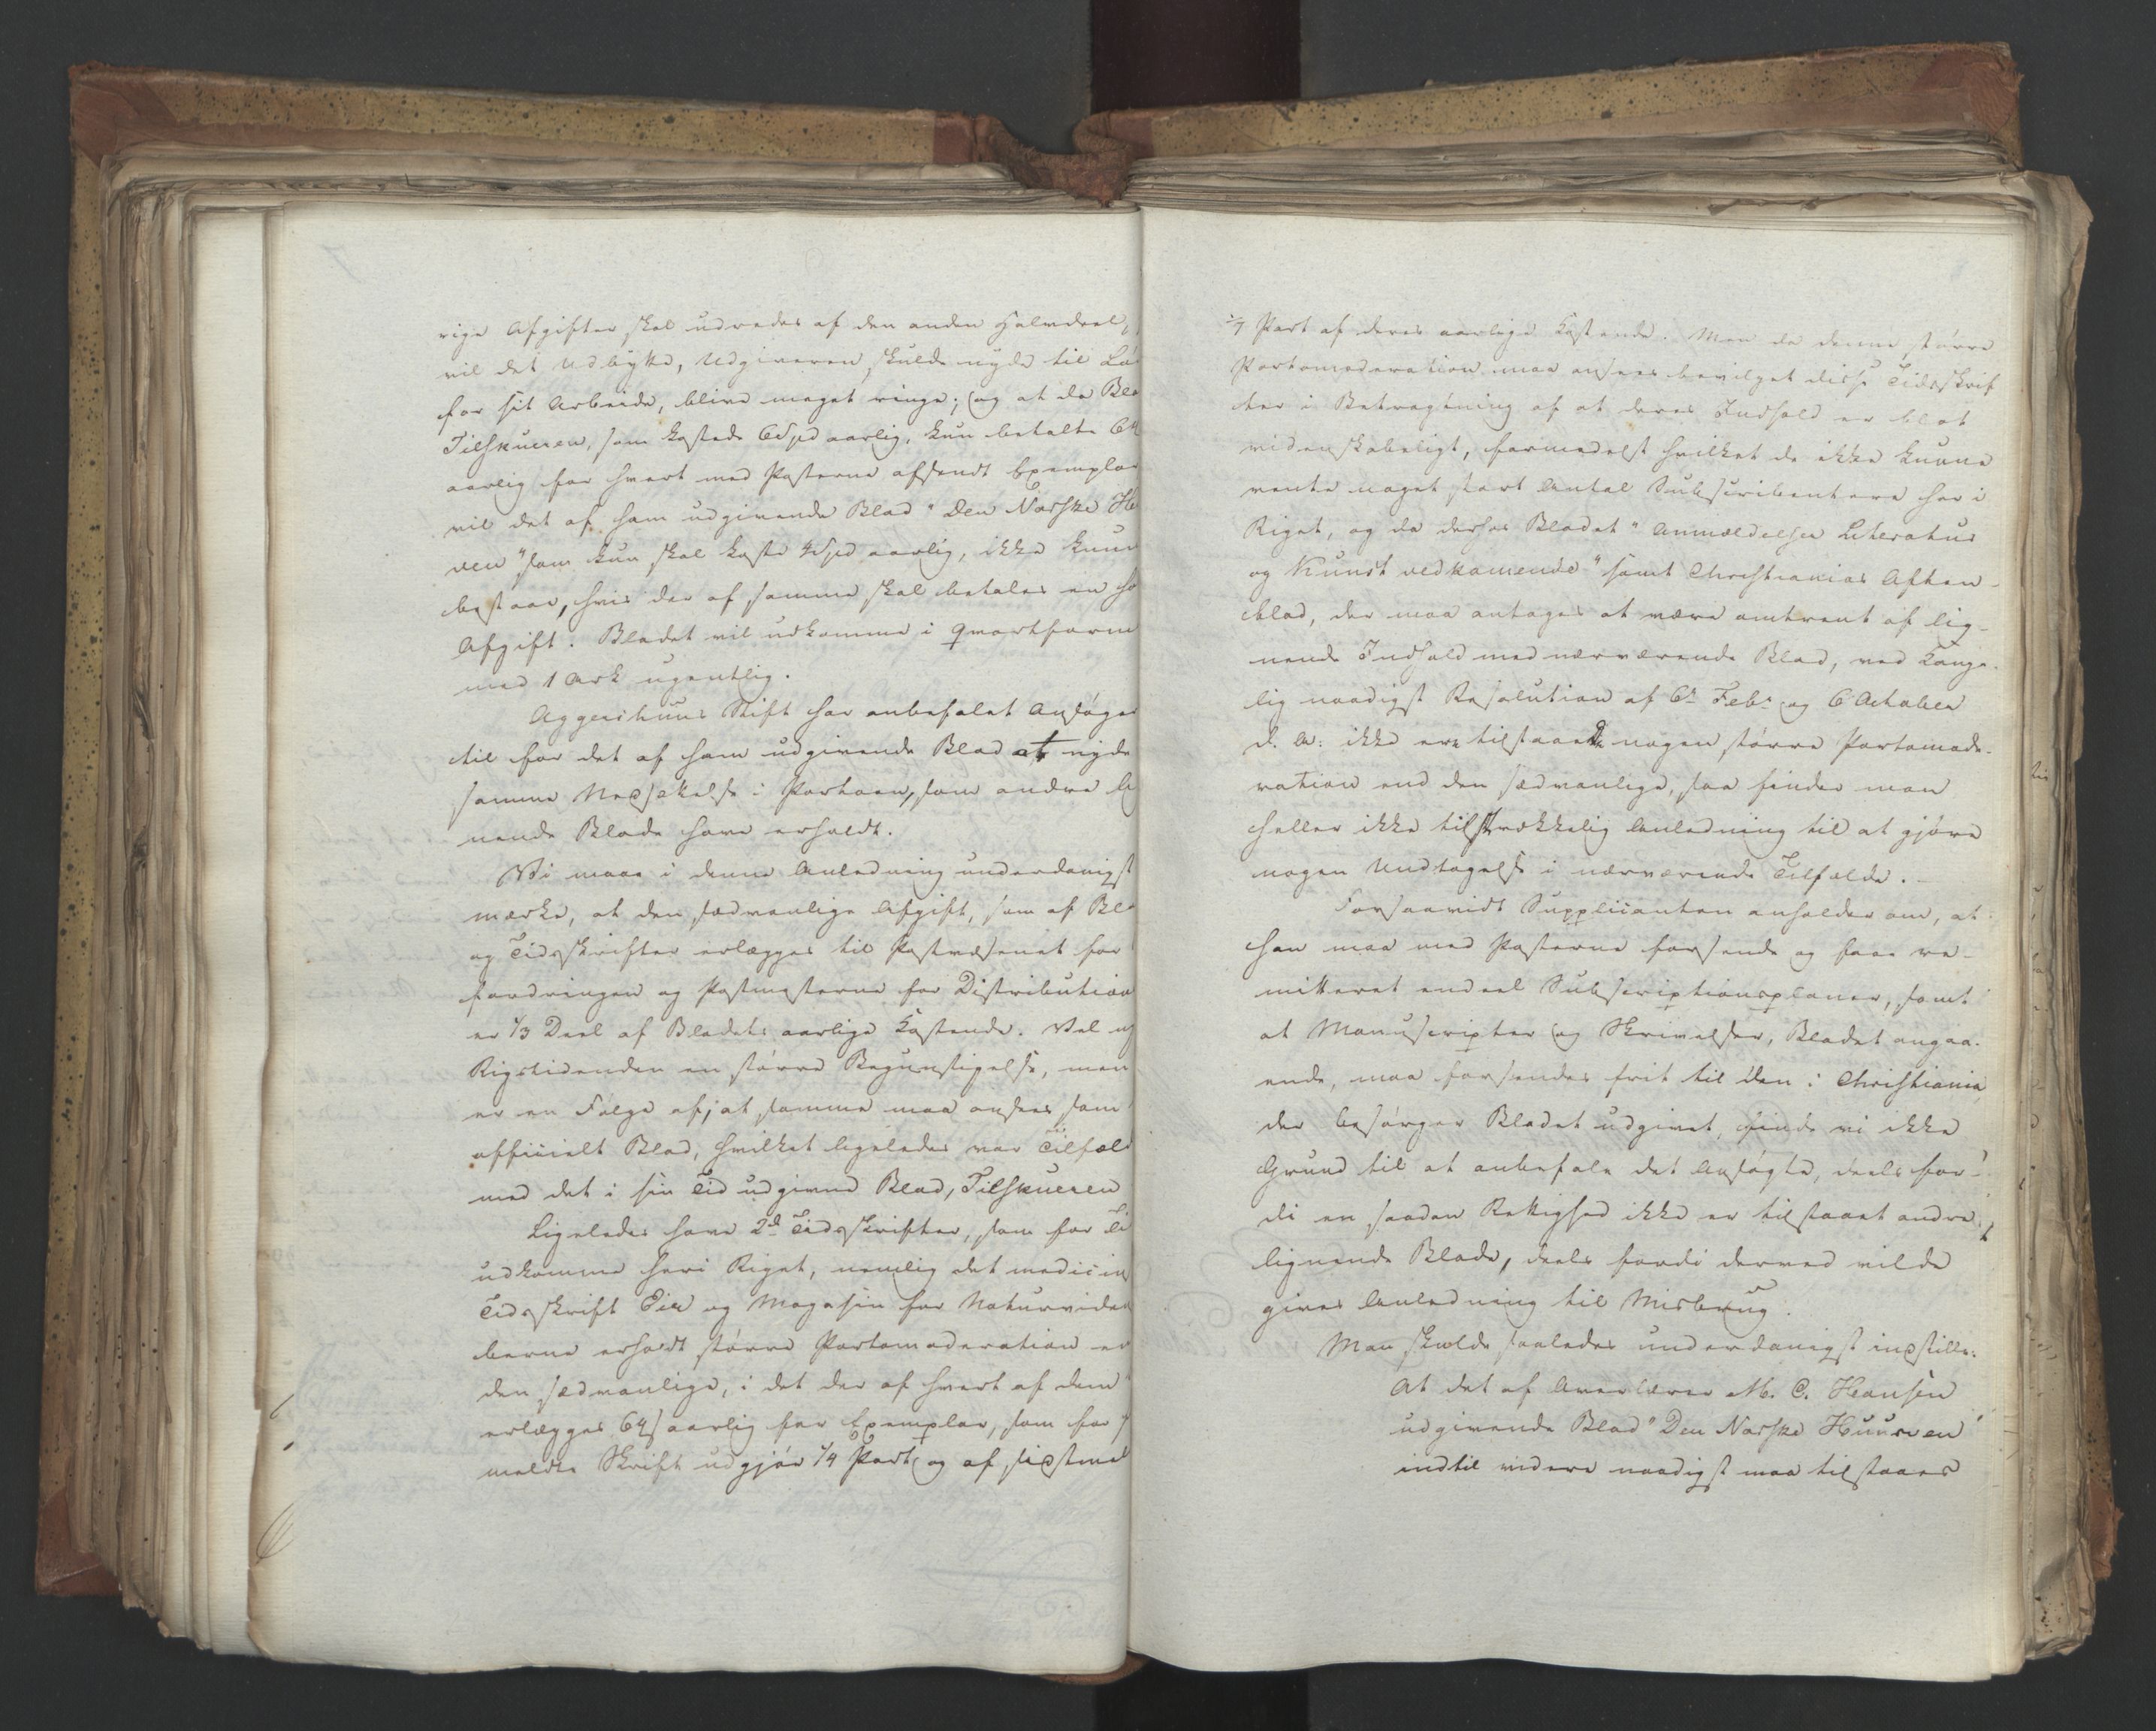 rige Afgifter skal udredes af den anden Halvdeel,
vil det Udbytte, Udgiveren skulde nyde til Løn
for sit Arbeide, blive meget ringe; og at da Bla
Tilskueren, som kostede 6 Spd aarlig, kun betalte 64
aarlig for hvert med Posterne afsendt Exemplar
vil det af ham udgivende Blad "Den Norske Hu
ven" som kun skal koste 4 Spd aarlig, ikke kunn
bestaae, hvis der af samme skal betales en hø
Afgift. Bladet vil udkomme i Qvartform
med 1 Ark ugentlig.
Aggershuus Stift har anbefalet Ansøge
til for det af ham udgivende Blad at nyde
samme Nedsettelse i Portoen, som andre lig
nende Blade have erholdt.
Vi maae i denne Anledning underdanigst
mærke, at den sædvanlige Afgift, som af Bla
og Tidsskrifter erlægges til Postvæsenet for
fordringen og Postmesterne for Distribution
er 1/3 Deel af Bladets aarlige Kostende. Vel ny
Rigstidenden en større Begunstigelse, men
er en Følge af, at samme maa ansees som
officielt Blad, hvilket ligeledes var Tilfæld
med det i sin Tid udgivne Blad, Tilskueren
Ligeledes have 2de Tidsskrifter, som for Ti
udkomme heri Riget, nemlig det medicin
Tidsskrift Eir og Magasin for Naturviden
berne erholdt større Portomoderation en
den sædvanlige, i det der af hvert af dem
erlægges 64 s aarlig for Exemplar, som for f
meldte Skrift udgjør 1/4 Part og af sidstmel
1/7 Part af deres aarlige Kostende. Men da denne større
Portomoderation maa ansees bevilget disse Tidsskrif
ter i Betragtning af at deres Indhold er blot
videnskabeligt, formedelst hvilket de ikke kunne
vente noget stort Antal Subscribentere her i
Riget, og da derhos Bladet "Anmældelser Literatur
og Kunst vedkomende" samt Christianias Aften-
blad, der maa antages at være omtrent af lig-
nende Indhold med nærværende Blad, ved Konge-
lig naadigst Resolution af 6te Febr og 6 October
d. A: ikke ere tilstaaede nogen større Portomode-
ration end den sædvanlige, saa finder man
heller ikke tilstrækkelig Anledning til at gjøre
nogen Undtagelse i nærværende Tilfælde. -
Forsaavidt Supplicanten anholder om, at
han maa med Posterne forsende og faae re-
mitteret endeel Subscriptionsplaner, samt
at Manuscripter og Skrivelser, Bladet angaa-
ende, maa forsendes frit til den i Christiania
der besørger Bladet udgivet, finde vi ikke
Grund til at anbefale det Ansøgte, deels for-
di en saadan Rettighed ikke er tilstaaet andre
lignende Blade, deels fordi derved vilde
gives Anledning til Misbrug.
Man skulde saaledes underdanigst indstille:
At det af Overlærer M. C. Hansen
udgivende Blad "Den Norske Huusven"
indtil videre naadigst maa tilstaaes